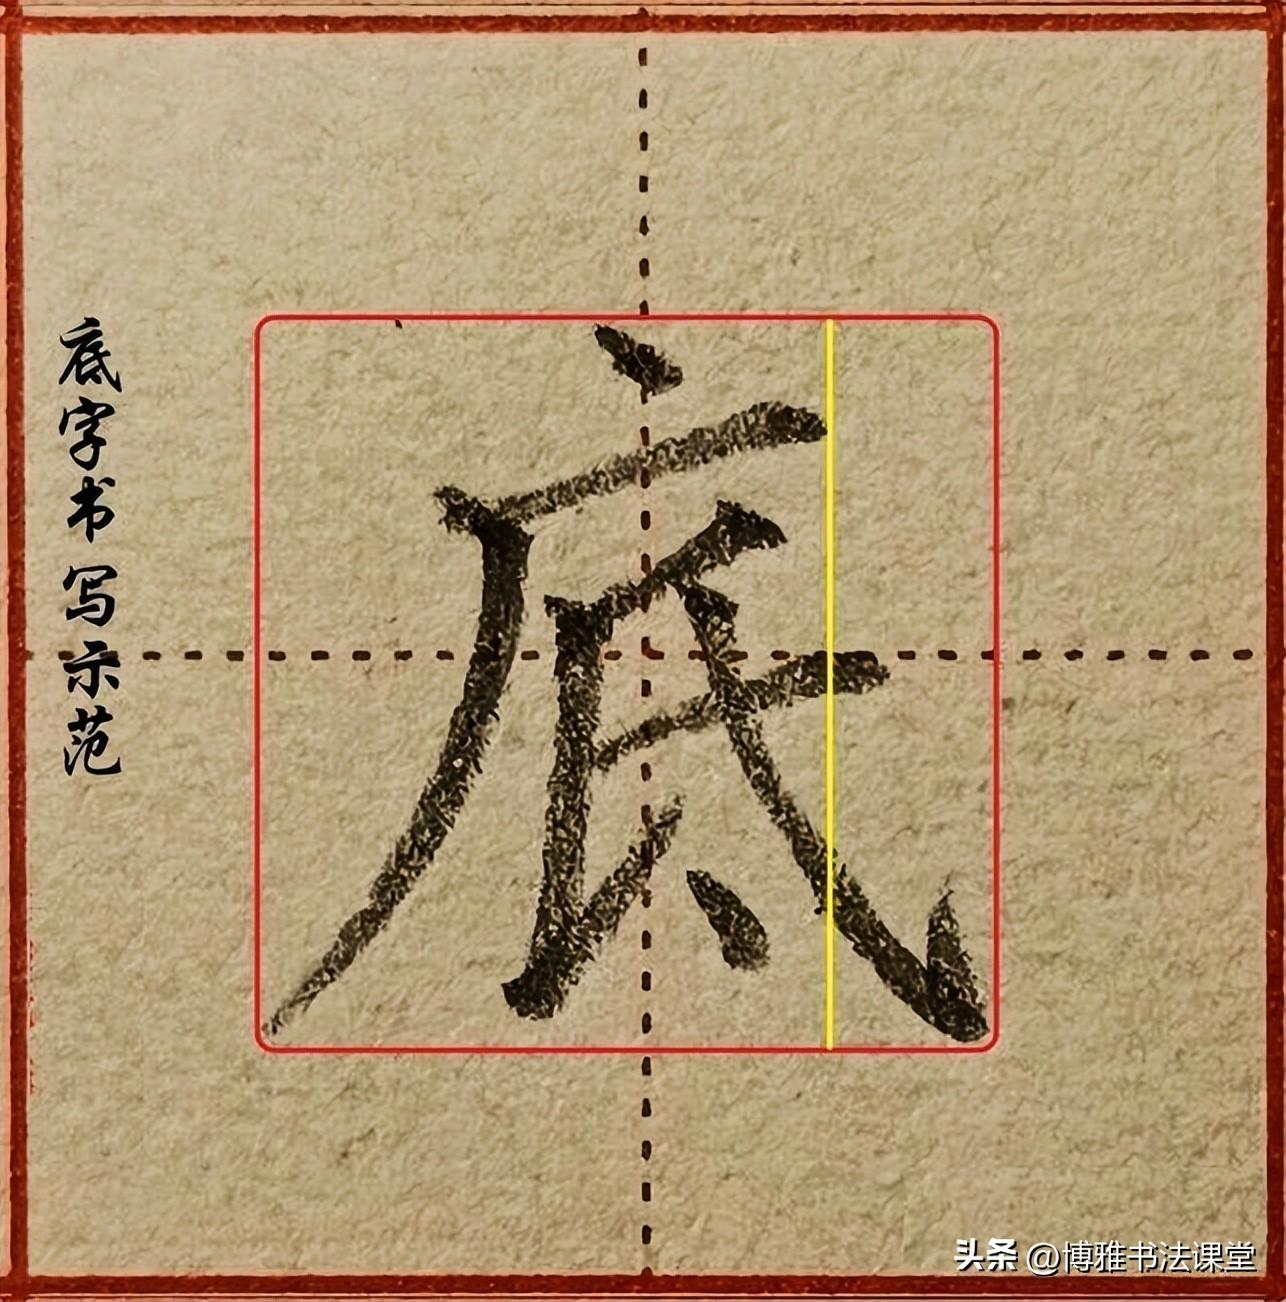 底字书写示范
底
头条 @博雅书法课堂